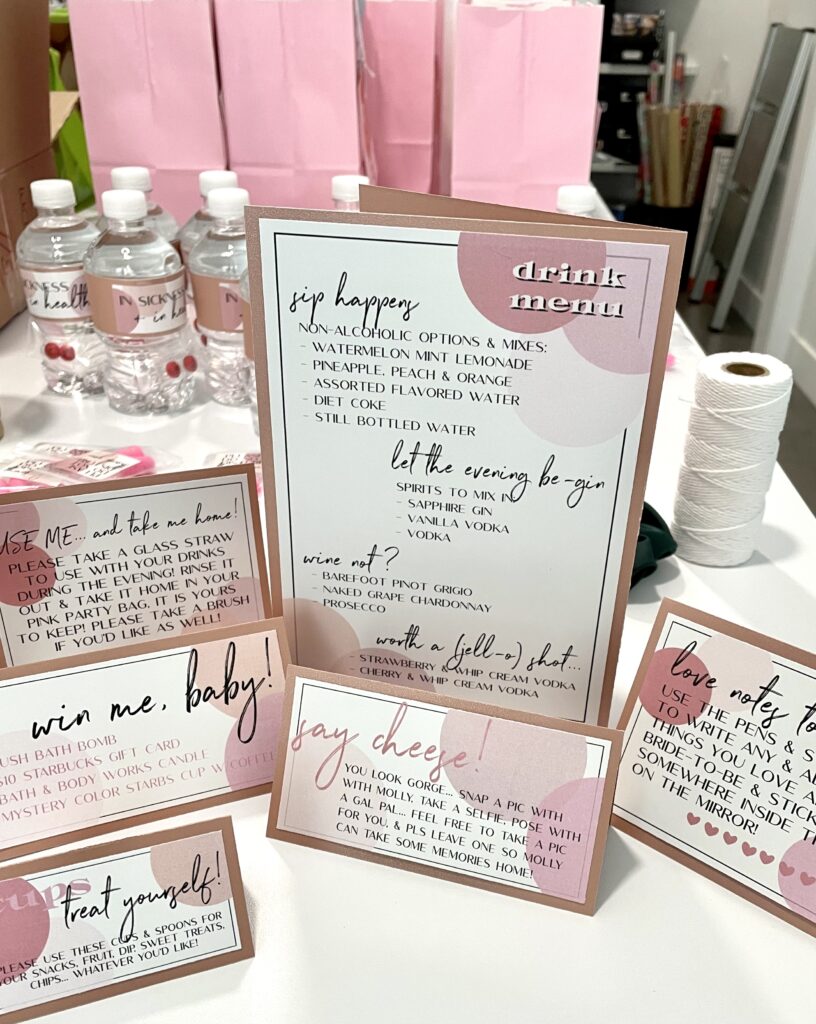 IN SICKNESS
+ in health
IN SICKNESS
+ in he
IN SICK
drink
menu
sip happens
NON-ALCOHOLIC OPTIONS & MIXES:
- WATERMELON MINT LEMONADE
- PINEAPPLE, PEACH & ORANGE
- ASSORTED FLAVORED WATER
- DIET COKE
- STILL BOTTLED WATER
let the evening be-gin
SPIRITS TO MIX IN
- SAPPHIRE GIN
- VANILLA VODKA
- VODKA
wine not?
- BAREFOOT PINOT GRIGIO
- NAKED GRAPE CHARDONNAY
- PROSECCO
worth a (jell-o) shot...
- STRAWBERRY & WHIP CREAM VODKA
- CHERRY & WHIP CREAM VODKA
USE ME... and take me home!
PLEASE TAKE A GLASS STRAW
TO USE WITH YOUR DRINKS
DURING THE EVENING! RINSE IT
OUT & TAKE IT HOME IN YOUR
PINK PARTY BAG, IT IS YOURS
TO KEEP! PLEASE TAKE A BRUSH
IF YOU'D LIKE AS WELL!
win me, baby!
USH BATH BOMB
$10 STARBUCKS GIFT CARD
BATH & BODY WORKS CANDLE
MYSTERY COLOR STARBS CUP W/COFFEE
say cheese!
YOU LOOK GORGE... SNAP A PIC WITH
WITH MOLLY, TAKE A SELFIE, POSE WITH
A GAL PAL... FEEL FREE TO TAKE A PIC
FOR YOU, & PLS LEAVE ONE SO MOLLY
CAN TAKE SOME MEMORIES HOME!
love notes to
USE THE PENS & S
TO WRITE ANY & A
THINGS YOU LOVE A
BRIDE-TO-BE & STICK
SOMEWHERE INSIDE TH
ON THE MIRROR!
cups
treat yourself!
PLEASE USE THESE CUPS & SPOONS FOR
YOUR SNACKS, FRUIT, DIP, SWEET TREATS,
CHIPS... WHATEVER YOU'D LIKE!